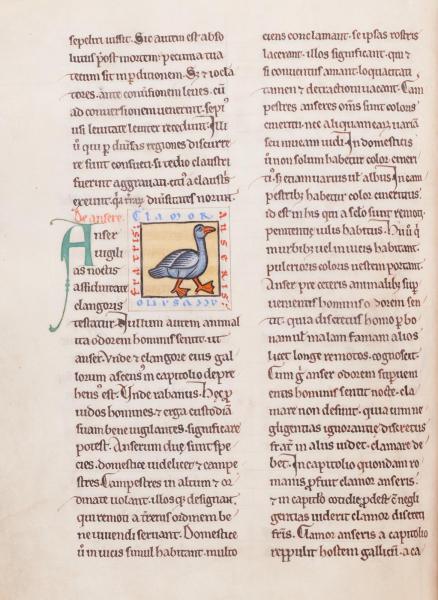 sepeliri iussit. Sic autem est abso
lutus post mortem: pecunia tua
tecum sit in p̄ditionem. Sȝ ⁊ iocla
tores. ante conv̄sionem leues. cū
ad conuersionem uenerint. sepiꝰ
usi leuitate leuiter recedunt. Illi
ū̄ qui p̄ diūsas regiones discurre
re sunt consueti. si tedio claustri
fuerint aggrauati. citiꝰ a claustꝭ
exeunt. diūsitates norūt.
De ansere.
Clamor
anseris
fratris
Anser
uigili
as noctis
assiduitate
clangoris
testatur. Nullum autem animal
ita odorem hominis sentit ut
anser. Unde ⁊ clangore eius gal
lorum ascensꝰ in capitolio depre
hensꝰ est. Unde rabanus. Hęc ꝓ
uidos homines. ⁊ erga custodiā
suam bene uigilantes. significare
potest. Anserum duę sunt spe
cies. domestice uidelicet ⁊ campe
stres. Campestres in altum ⁊ or
dinate uolant. illosqꝫ designant.
qui remoti a t̄renis ordinem be
ne uiuendi seruant. Domestice
ū̄ in uicis simul habitant. multo
ciens conclamant. se ipsas rostris
lacerant. illos significant. qui ⁊
si conuentus amant. loquacitati
tamen ⁊ detractioni uacant. Cam
pestres anseres om̄s sunt coloris
cineritii. nec aliquam earū uariā
seu niueam uidi. In domesticis
ū̄ non solum habetur color cineri
tiꝰ. s; etiam uariꝰ ul̄ albus. In cam
pestribꝫ habetur color cineritius.
id est in his qui a sc̄lo sunt remoti.
penitentię uilis habitus. Hii ū̄ qͥ
in urbibꝫ ul̄ in uicis habitant.
pulcrioris coloris uestem portant.
Anser pre ceteris animalibꝫ suꝑ
uenientis hominis odorem sen
tit. quia discretus homo ꝑ bo
nam ul̄ malam famam alios
licet longe remotos. cognoscit.
Cum ḡ anser odorem suꝑueni
entis hominis sentit nocte. cla
mare non desinit. quia cum ne
gligentias ignorantię discretus
frat̄ in aliis uidet. clamare de
bet. In capitolio quondam ro
manis ꝓfuit clamor anseris.
⁊ in capitl̄o cotidie ꝓdest. cū negli
gentias uiderit clamor discreti
fr̄is. Clamor anseris a capitolio
reppulit hostem gallicū. a ca